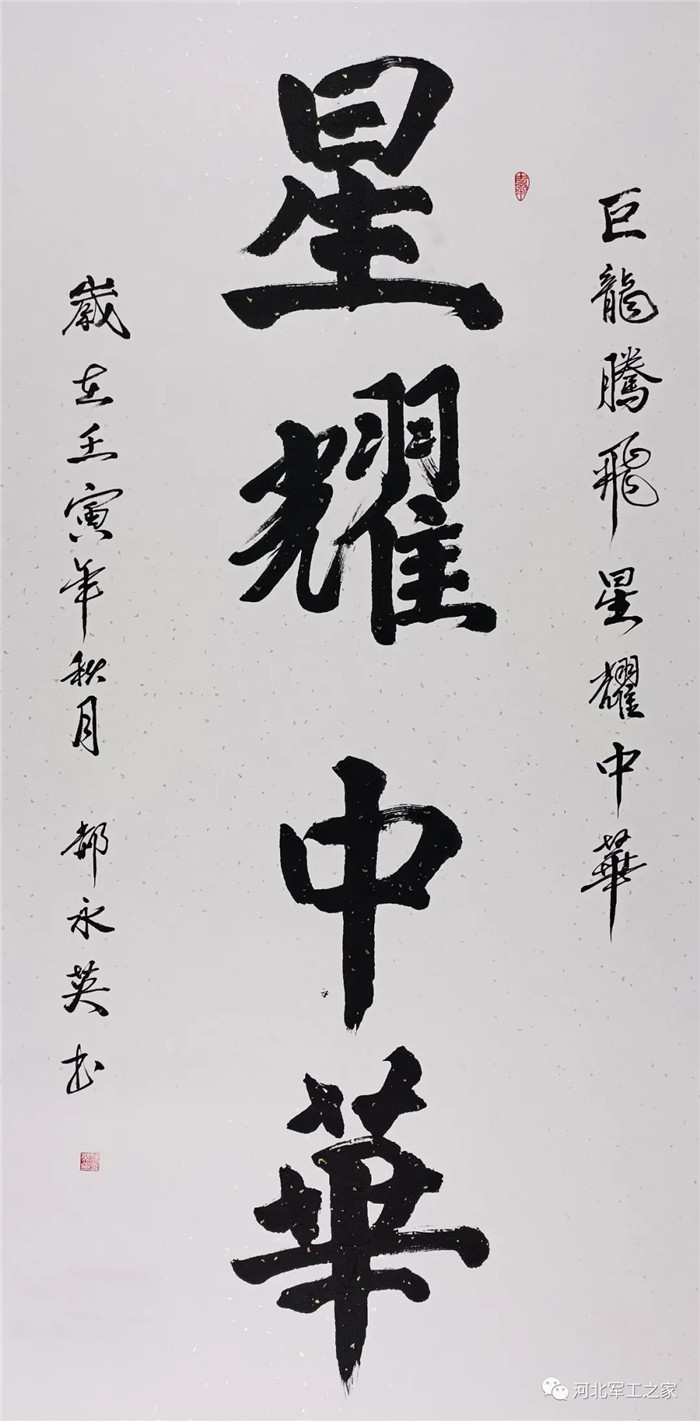 巨龍騰飛星耀中華
星耀中華
歲在壬寅年秋月 郝永英书
河北军工之家